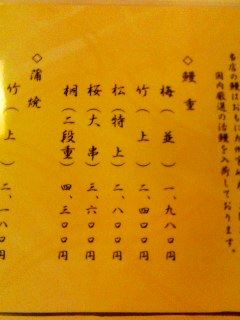 当店の鰻はおもに
国内厳選の活鰻を入荷しております。
◇鰻重
梅（並）一、九八〇円
竹（上）二、四〇〇円
松（特上）二、八〇〇円
桜（大串）三、六〇〇円
桐（二段重）四、三〇〇円
◇蒲焼
竹（上）二、一八〇円